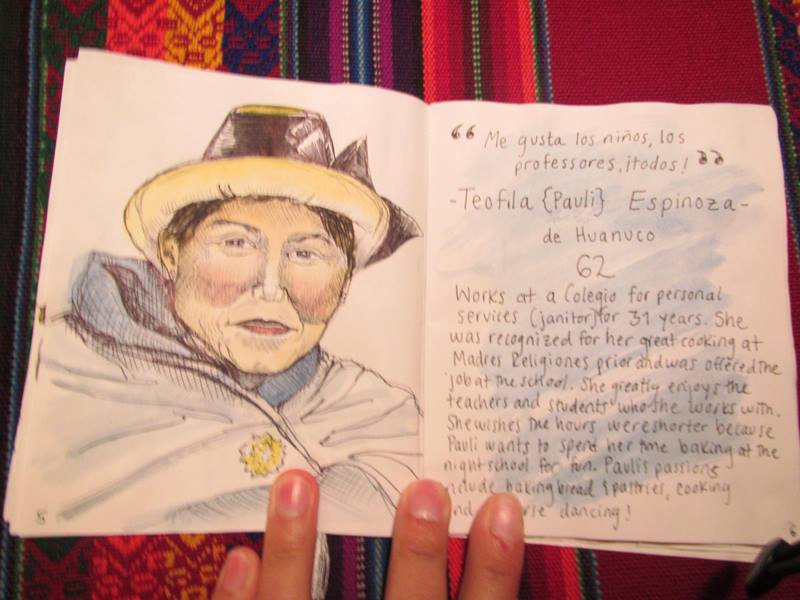 “ Me gusta los niños, los
professores, ¡todos! ”
-Teofila {Pauli} Espinoza-
de Huanuco
62
Works at a Colegio for personal
services (janitor) for 31 years. She
was recognized for her great cooking at
Madres Religiones prior and was offered the
job at the school. She greatly enjoys the
teachers and students who she works with.
She wishes the hours were shorter because
Pauli wants to spend her time baking at the
night school for fun. Pauli's passions
include baking bread & pastries, cooking
dancing!